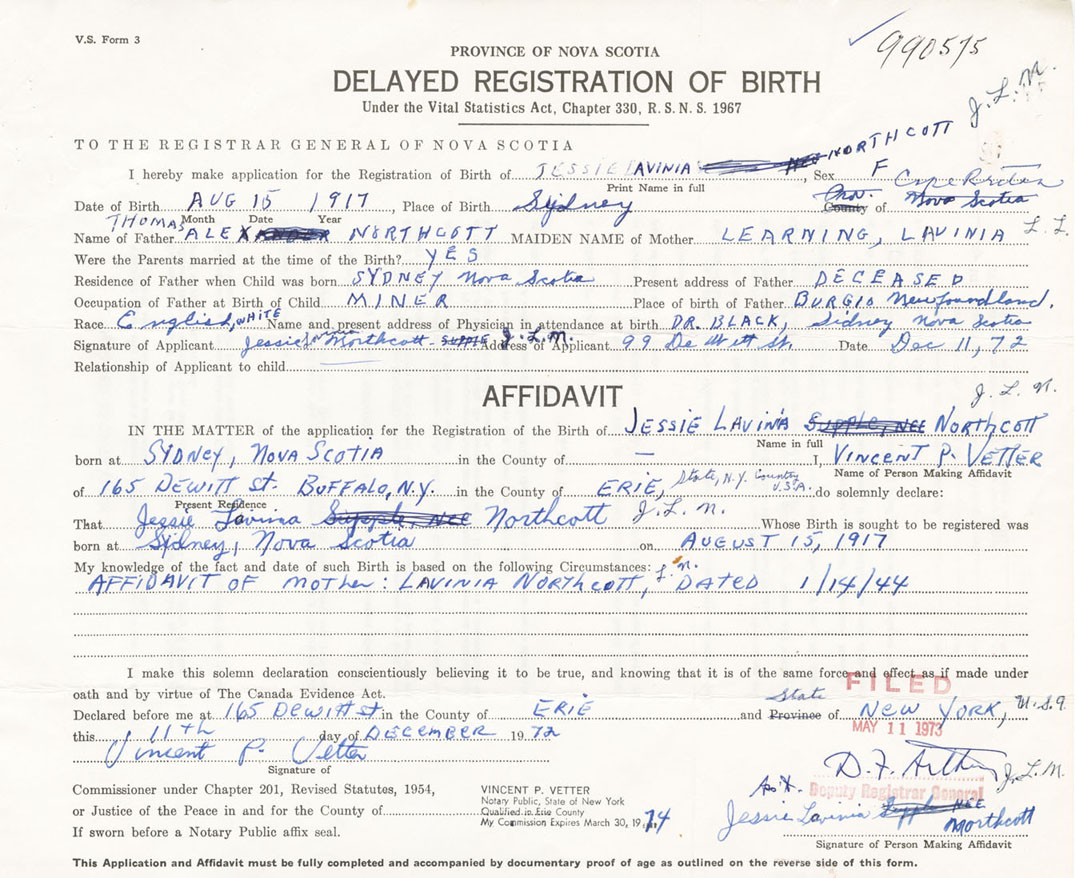 V.S. Form 3
990515
PROVINCE OF NOVA SCOTIA
DELAYED REGISTRATION OF BIRTH
Under the Vital Statistics Act, Chapter 330, R.S.N.S. 1967
J. L. N.
TO THE REGISTRAR GENERAL OF NOVA SCOTIA
I hereby make application for the Registration of Birth of JESSIE LAVINIA NEE NORTHCOTT, Sex F
Print Name in full
Date of Birth AUG 15 1917, Place of Birth Sydney County of Nova Scotia Cape Breton
Month Date Year
THOMAS
Name of Father ALEXANDER NORTHCOTT MAIDEN NAME of Mother LEARNING, LAVINIA
Were the Parents married at the time of the Birth? YES
Residence of Father when Child was born SYDNEY Nova Scotia Present address of Father DECEASED
Occupation of Father at Birth of Child MINER Place of birth of Father BURGIO Newfoundland.
Race English, WHITE Name and present address of Physician in attendance at birth DR. BLACK, Sidney Nova Scotia
Signature of Applicant Jessie Northcott SUPPLE J.L.N. Address of Applicant 99 De Witt St. Date Dec 11, 72
Relationship of Applicant to child
AFFIDAVIT
J. L. N.
IN THE MATTER of the application for the Registration of the Birth of JESSIE LAVINA SUPPLE, NEE NORTHCOTT
Name in full
born at SYDNEY, NOVA SCOTIA in the County of — I, VINCENT P. VETTER
Name of Person Making Affidavit
of 165 DEWITT St. BUFFALO, N.Y. in the County of ERIE, State, N.Y. Country U.S.A. do solemnly declare:
Present Residence
That Jessie Lavina Supple, NEE Northcott J. L. N. Whose Birth is sought to be registered was
born at Sidney, Nova Scotia on AUGUST 15, 1917
My knowledge of the fact and date of such Birth is based on the following Circumstances:
AFFIDAVIT OF mother: LAVINIA NORTHCOTT, DATED 1/14/44
I make this solemn declaration conscientiously believing it to be true, and knowing that it is of the same force and effect as if made under
oath and by virtue of The Canada Evidence Act.
FILED
Declared before me at 165 DEWITT St in the County of ERIE and Province State of NEW YORK, U.S.A
MAY 11 1973
this 11th day of DECEMBER 1972
Vincent P. Vetter
Signature of
D. F. Arthur J.L.N.
Deputy Registrar General
Commissioner under Chapter 201, Revised Statutes, 1954,
or Justice of the Peace in and for the County of
If sworn before a Notary Public affix seal.
VINCENT P. VETTER
Notary Public, State of New York
Qualified in Erie County
My Commission Expires March 30, 1974
Jessie Lavinia Supple NEE Northcott
Signature of Person Making Affidavit
This Application and Affidavit must be fully completed and accompanied by documentary proof of age as outlined on the reverse side of this form.